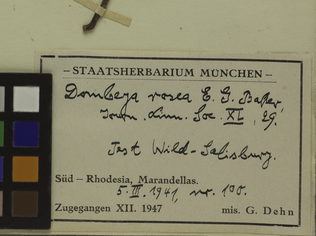 – STAATSHERBARIUM MÜNCHEN –
Dombeya rosea E. G. Baker,
Journ. Linn. Soc. XL, 29.
Test Wild – Salisbury.
Süd – Rhodesia, Marandellas.
5. III. 1941, nr. 190.
Zugegangen XII. 1947 mis. G. Dehn